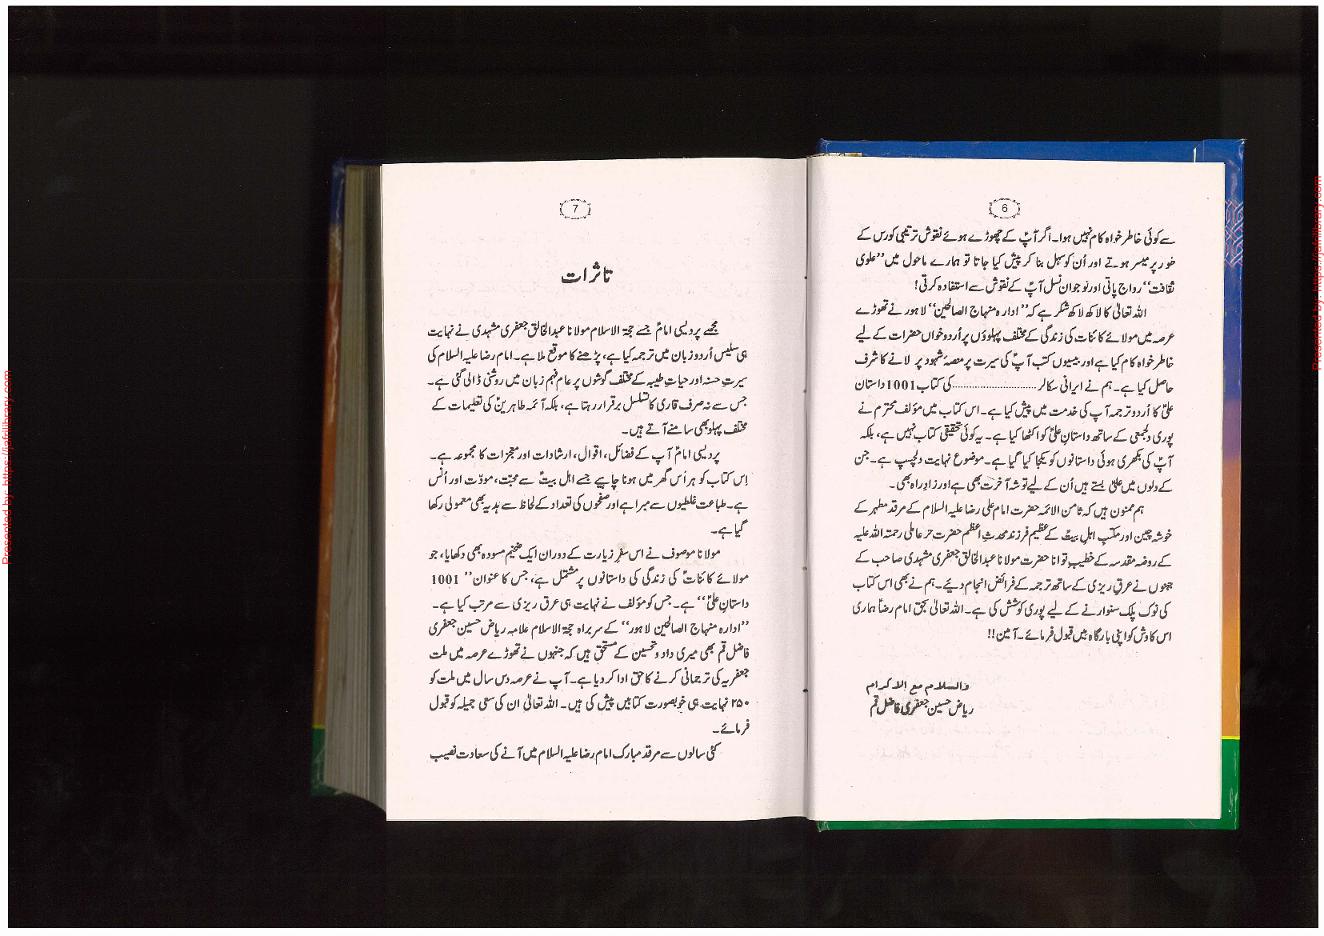 6
سے کوئی خاطر خواہ کام نہیں ہوا۔ اگر آپؑ کے چھوڑے ہوئے نقوش ترتیبی کورس کے
طور پر میسر ہوتے اور اُن کو سہل بنا کر پیش کیا جاتا تو ہمارے ماحول میں ’’علوی
ثقافت‘‘ رواج پاتی اور نوجوان نسل آپؑ کے نقوش سے استفادہ کرتی!
اللہ تعالٰی کا لاکھ لاکھ شکر ہے کہ ’’ادارہ منہاج الصالحین‘‘ لاہور نے تھوڑے
عرصہ میں مولائے کائنات کی زندگی کے مختلف پہلوؤں پر اُردو خواں حضرات کے لیے
خاطر خواہ کام کیا ہے اور بیسیوں کتب آپؑ کی سیرت پر منصۂ شہود پر لانے کا شرف
حاصل کیا ہے۔ ہم نے ایرانی سکالر ............................ کی کتاب 1001 داستان
علیؑ کا اُردو ترجمہ آپ کی خدمت میں پیش کیا ہے۔ اس کتاب میں مؤلف محترم نے
پوری دلجمعی کے ساتھ داستانِ علیؑ کو اکٹھا کیا ہے۔ یہ کوئی تحقیقی کتاب نہیں ہے، بلکہ
آپؑ کی بکھری ہوئی داستانوں کو یکجا کیا گیا ہے۔ موضوع نہایت دلچسپ ہے۔ جن
کے دلوں میں علیؑ بستے ہیں اُن کے لیے توشہ آخرت بھی ہے اور زادِ راہ بھی۔
ہم ممنون ہیں کہ ثامن الائمہ حضرت امام علی رضا علیہ السلام کے مرقد مطہر کے
خوشہ چین اور مکتبِ اہلِ بیتؑ کے عظیم فرزند محدثِ اعظم حضرت حر عاملی رحمتہ اللہ علیہ
کے روضہ مقدسہ کے خطیبِ توانا حضرت مولانا عبدالخالق جعفری مشہدی صاحب کے
جنہوں نے عرق ریزی کے ساتھ ترجمہ کے فرائض انجام دیئے۔ ہم نے بھی اس کتاب
کی نوک پلک سنوارنے کے لیے پوری کوشش کی ہے۔ اللہ تعالٰی بحق امام رضاؑ ہماری
اس کاوش کو اپنی بارگاہ میں قبول فرمائے۔ آمین!!
والسلام مع الاکرام
ریاض حسین جعفری فاضل قم
7
تاثرات
مجھے پردیسی امامؑ جسے حجۃ الاسلام مولانا عبدالخالق جعفری مشہدی نے نہایت
ہی سلیس اُردو زبان میں ترجمہ کیا ہے، پڑھنے کا موقع ملا ہے۔ امام رضا علیہ السلام کی
سیرتِ حسنہ اور حیاتِ طیبہ کے مختلف گوشوں پر عام فہم زبان میں روشنی ڈالی گئی ہے۔
جس سے نہ صرف قاری کا تسلسل برقرار رہتا ہے، بلکہ آئمہ طاہرینؑ کی تعلیمات کے
مختلف پہلو بھی سامنے آتے ہیں۔
پردیسی امامؑ آپ کے فضائل، اقوال، ارشادات اور معجزات کا مجموعہ ہے۔
اِس کتاب کو ہر اُس گھر میں ہونا چاہیے جسے اہل بیتؑ سے محبّت، مودّت اور اُنس
ہے۔ طباعت غلطیوں سے مبرا ہے اور صفحوں کی تعداد کے لحاظ سے ہدیہ بھی معمولی رکھا
گیا ہے۔
مولانا موصوف نے اس سفرِ زیارت کے دوران ایک ضخیم مسودہ بھی دکھایا، جو
مولائے کائناتؑ کی زندگی کی داستانوں پر مشتمل ہے، جس کا عنوان ’’1001
داستانِ علیؑ‘‘ ہے۔ جس کو مؤلف نے نہایت ہی عرق ریزی سے مرتب کیا ہے۔
’’ادارہ منہاج الصالحین لاہور‘‘ کے سربراہ حجۃ الاسلام علامہ ریاض حسین جعفری
فاضل قم بھی میری داد و تحسین کے مستحق ہیں کہ جنہوں نے تھوڑے عرصہ میں ملت
جعفریہ کی ترجمانی کرنے کا حق ادا کر دیا ہے۔ آپ نے عرصہ دس سال میں ملت کو
۲۵۰ نہایت ہی خوبصورت کتابیں پیش کی ہیں۔ اللہ تعالٰی ان کی سعی جمیلہ کو قبول
فرمائے۔
کئی سالوں سے مرقد مبارک امام رضا علیہ السلام میں آنے کی سعادت نصیب
Presented by: https://jafrilibrary.com
Presented by: https://jafrilibrary.com